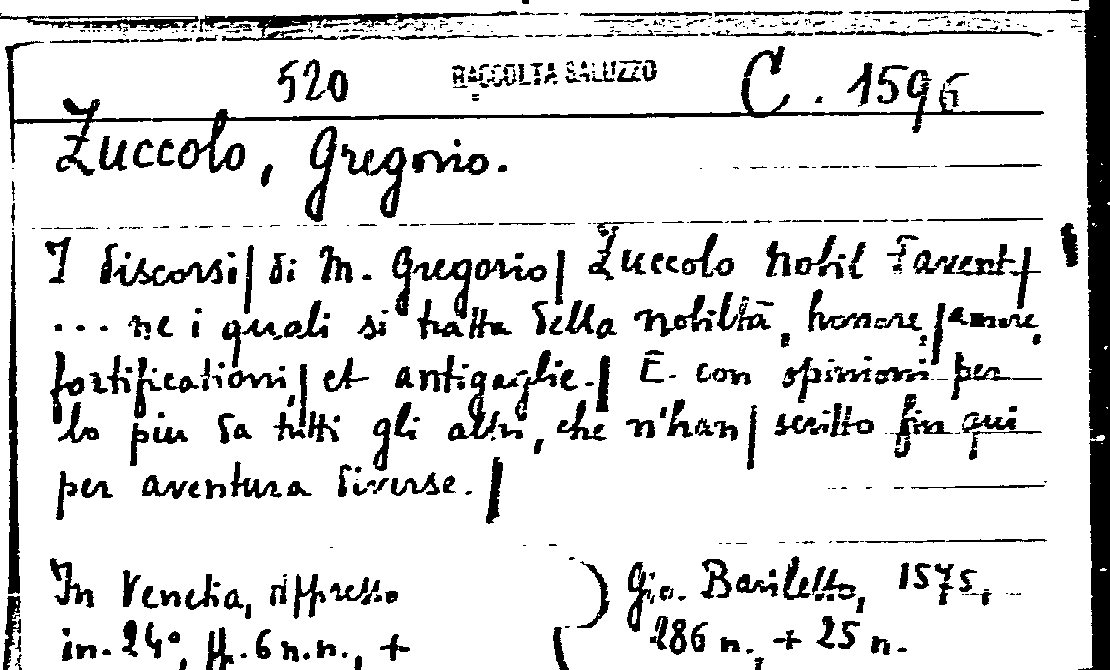 520 RACCOLTA SALUZZO C. 1596
Zuccolo, Gregorio.
I discorsi| di M. Gregorio| Zuccolo nobil Favent.|
... ne i quali si tratta della nobiltà, honore,|amore,
fortificationi,| et antigaglie.| E. con opinioni per
lo piu da tutti gli altri, che n'han| scritto fin qui
per aventura diverse.|
In Venetia, appresso ) Gio. Bariletto, 1575,
in-24°, ff. 6 n.n., + ( 286 n., + 25 n.